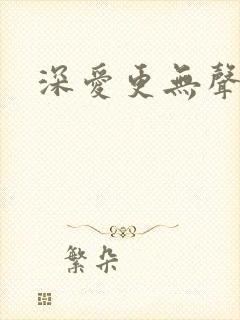 深愛更無聲
繁朵